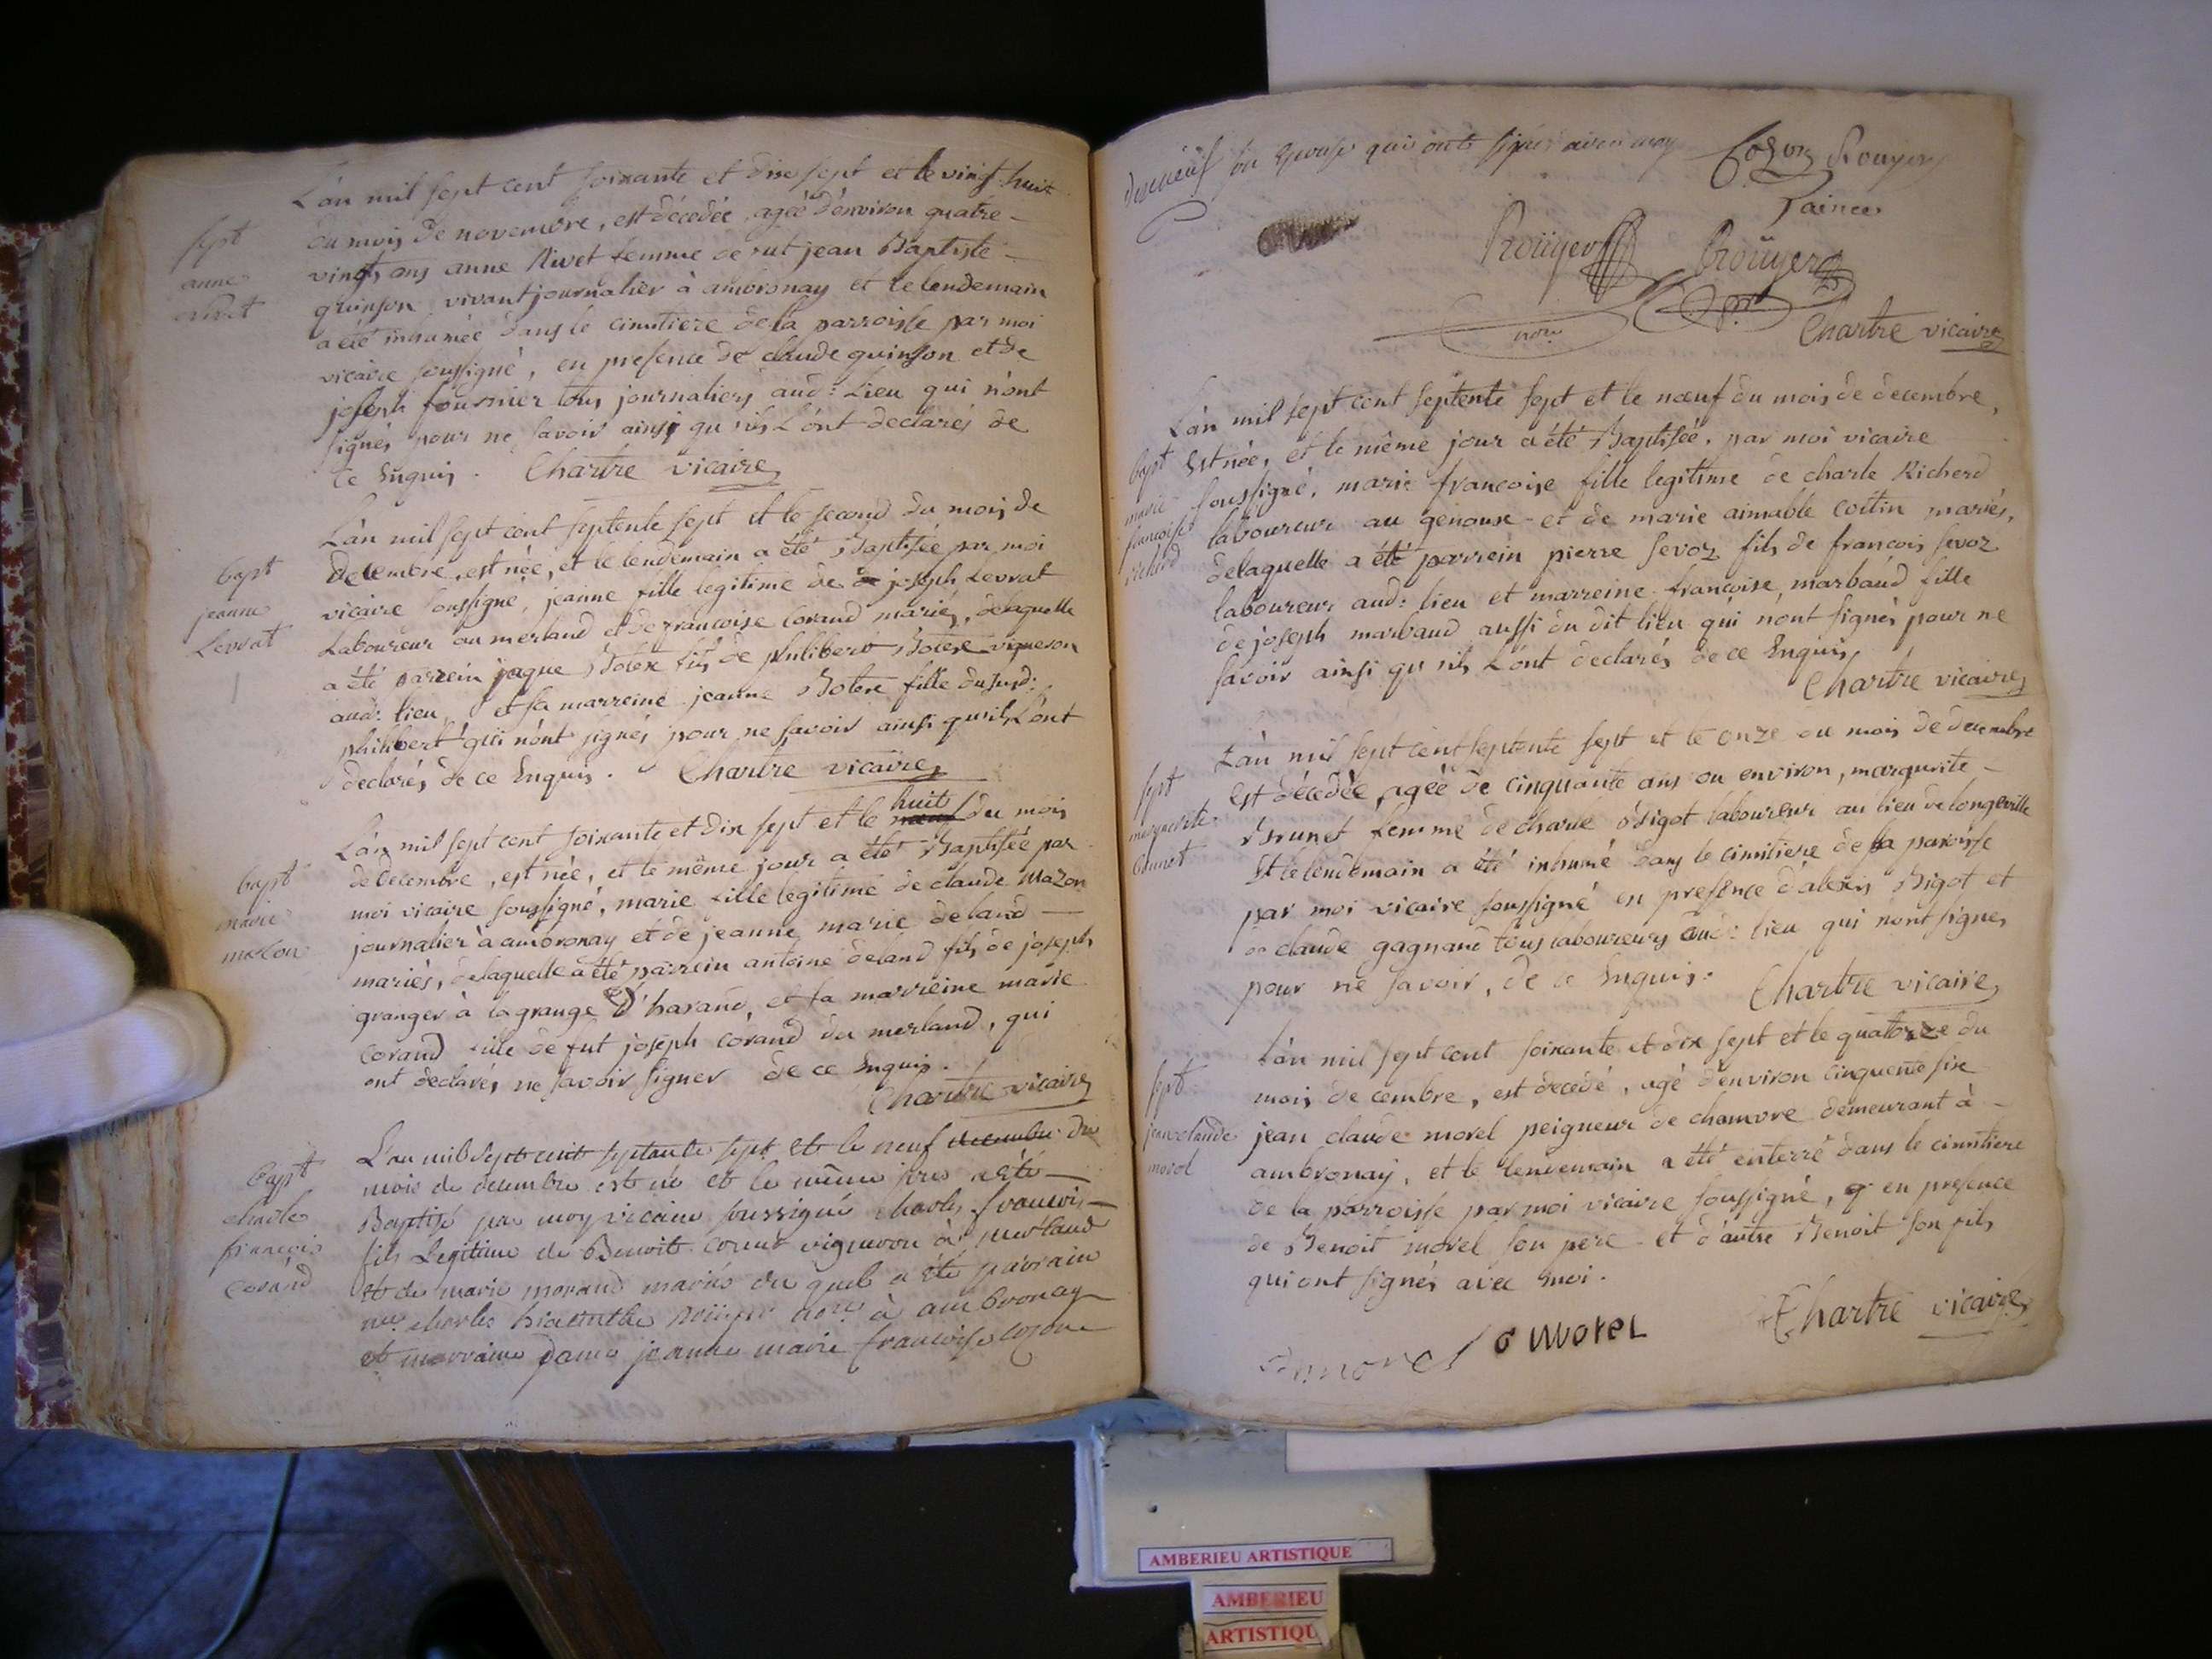 L'an mil sept cent soixante et dix sept et le vingt huit
sept
anne
rivet
du mois de novembre, est décedée, agée d'environ quatre-
vingts ans anne Rivet femme de fut jean Baptiste
quinson vivant journalier à ambronay et le lendemain
a été inhumée dans le cimitiere de la parroisse par moi
vicaire soussigné, en presence de claude quinson et de
joseph fournier tous journaliers aud: Lieu qui n'ont
signés pour ne savoir ainsi qu'ils L'ont declarés de
ce Enquis. Chartre vicaire
L'an mil sept cent septente sept et le second du mois de
bapt
jeanne
Levrat
decembre, est née, et le lendemain a été Baptisée par moi
vicaire soussigné, jeanne fille legitime de joseph Levrat
Laboureur au merland et de francoise Corand mariés, delaquelle
a été parrein jaque Botex fils de philibert Botex vigneron
aud: lieu, et sa marreine jeanne Botex fille du susd:
philibert qui n'ont signés pour ne savoir ainsi qu'ils L'ont
declarés de ce Enquis. Chartre vicaire
L'an mil sept cent soixante et dix sept et le huit du mois
bapt
marie
mazon
de decembre, est née, et le même jour a été Baptisée par
moi vicaire soussigné, marie fille légitime de claude Mazon
journalier à ambronay et de jeanne marie deland
mariés, delaquelle a été parrein antoine deland fils de joseph
granger à la grange d'haraud, et sa marreine marie
Corand fille de fut joseph corand du merland, qui
ont declarés ne savoir signer de ce Enquis.
Chartre vicaire
L'an mil sept cent septante sept et le neuf decembre du
bapt
charle
françois
Corand
mois de decembre est né et le même jour a été
Baptisé par moy vicaire soussigné charles francois
fils Legitime de Benoit Corand vigneron à merland
et de marie morand mariés du quel a été parrain
me charles hiacinthe Roüyer nore à ambronay
et marraine Dame jeanne marie francoise cozon
son Epouse qui ont signés avec moy Cozon Rouyer
L'ainée
Roüyer Roüyer
nore
Chartre vicaire
L'an mil sept cent septente sept et le nœuf du mois de decembre,
bapt
marie
francoise
richerd
Est née, et le même jour a été Baptisée, par moi vicaire
soussigné, marie francoise fille legitime de charle Richerd
laboureur au genoux et de marie aimable cottin mariés,
delaquelle a été parrein pierre sevoz fils de francois sevoz
laboureur aud: lieu et marreine francoise, marbaud fille
de joseph marbaud aussi du dit lieu qui n'ont signés pour ne
savoir ainsi qu'ils L'ont declarés de ce Enquis,
Chartre vicaire
L'an mil sept cent septente sept et le onze du mois de decembre
sept
marguerite
brunet
est décedée, agée de cinquante ans ou environ, margurite
Brunet femme de charle Bigot laboureur au lieu de longeville
Et le lendemain a été inhumé dans le cimitiere de la paroisse
par moi vicaire soussigné en presence d'alexis Bigot et
de claude gagnand tous laboureurs aud: lieu qui n'ont signés
pour ne savoir, de ce Enquis. Chartre vicaire
L'an mil sept cent soixante et dix sept et le quatorze du
sept
jean claude
morel
mois de cembre, est decedé, agé d'environ cinquente six
jean claude morel peigneur de chanvre demeurant à
ambronay, et le lendemain a été enterré dans le cimitiere
de la parroisse par moi vicaire soussigné, en presence
de Benoit morel son pere et d'autre Benoit son fils
qui ont signés avec moi.
morel B Morel Chartre vicaire
AMBERIEU ARTISTIQUE
AMBERIEU
ARTISTIQU